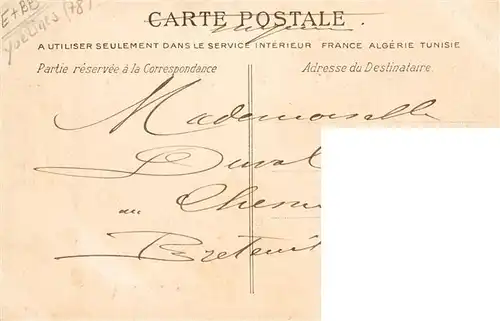 E+BB
Yvelines (78)
CARTE POSTALE
A UTILISER SEULEMENT DANS LE SERVICE INTÉRIEUR FRANCE ALGÉRIE TUNISIE
Partie réservée à la Correspondance
Adresse du Destinataire
Mademoiselle
Duval
au Chesn
Breteuil